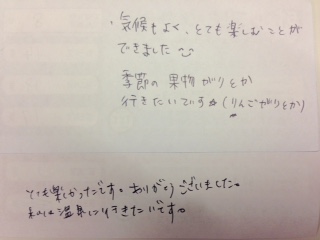 ・気候もよく、とても楽しむことが
できました
季節の果物がりとか
行きたいです☆(りんごがりとか)
とても楽しかったです。ありがとうございました。
私は温泉に行きたいです。